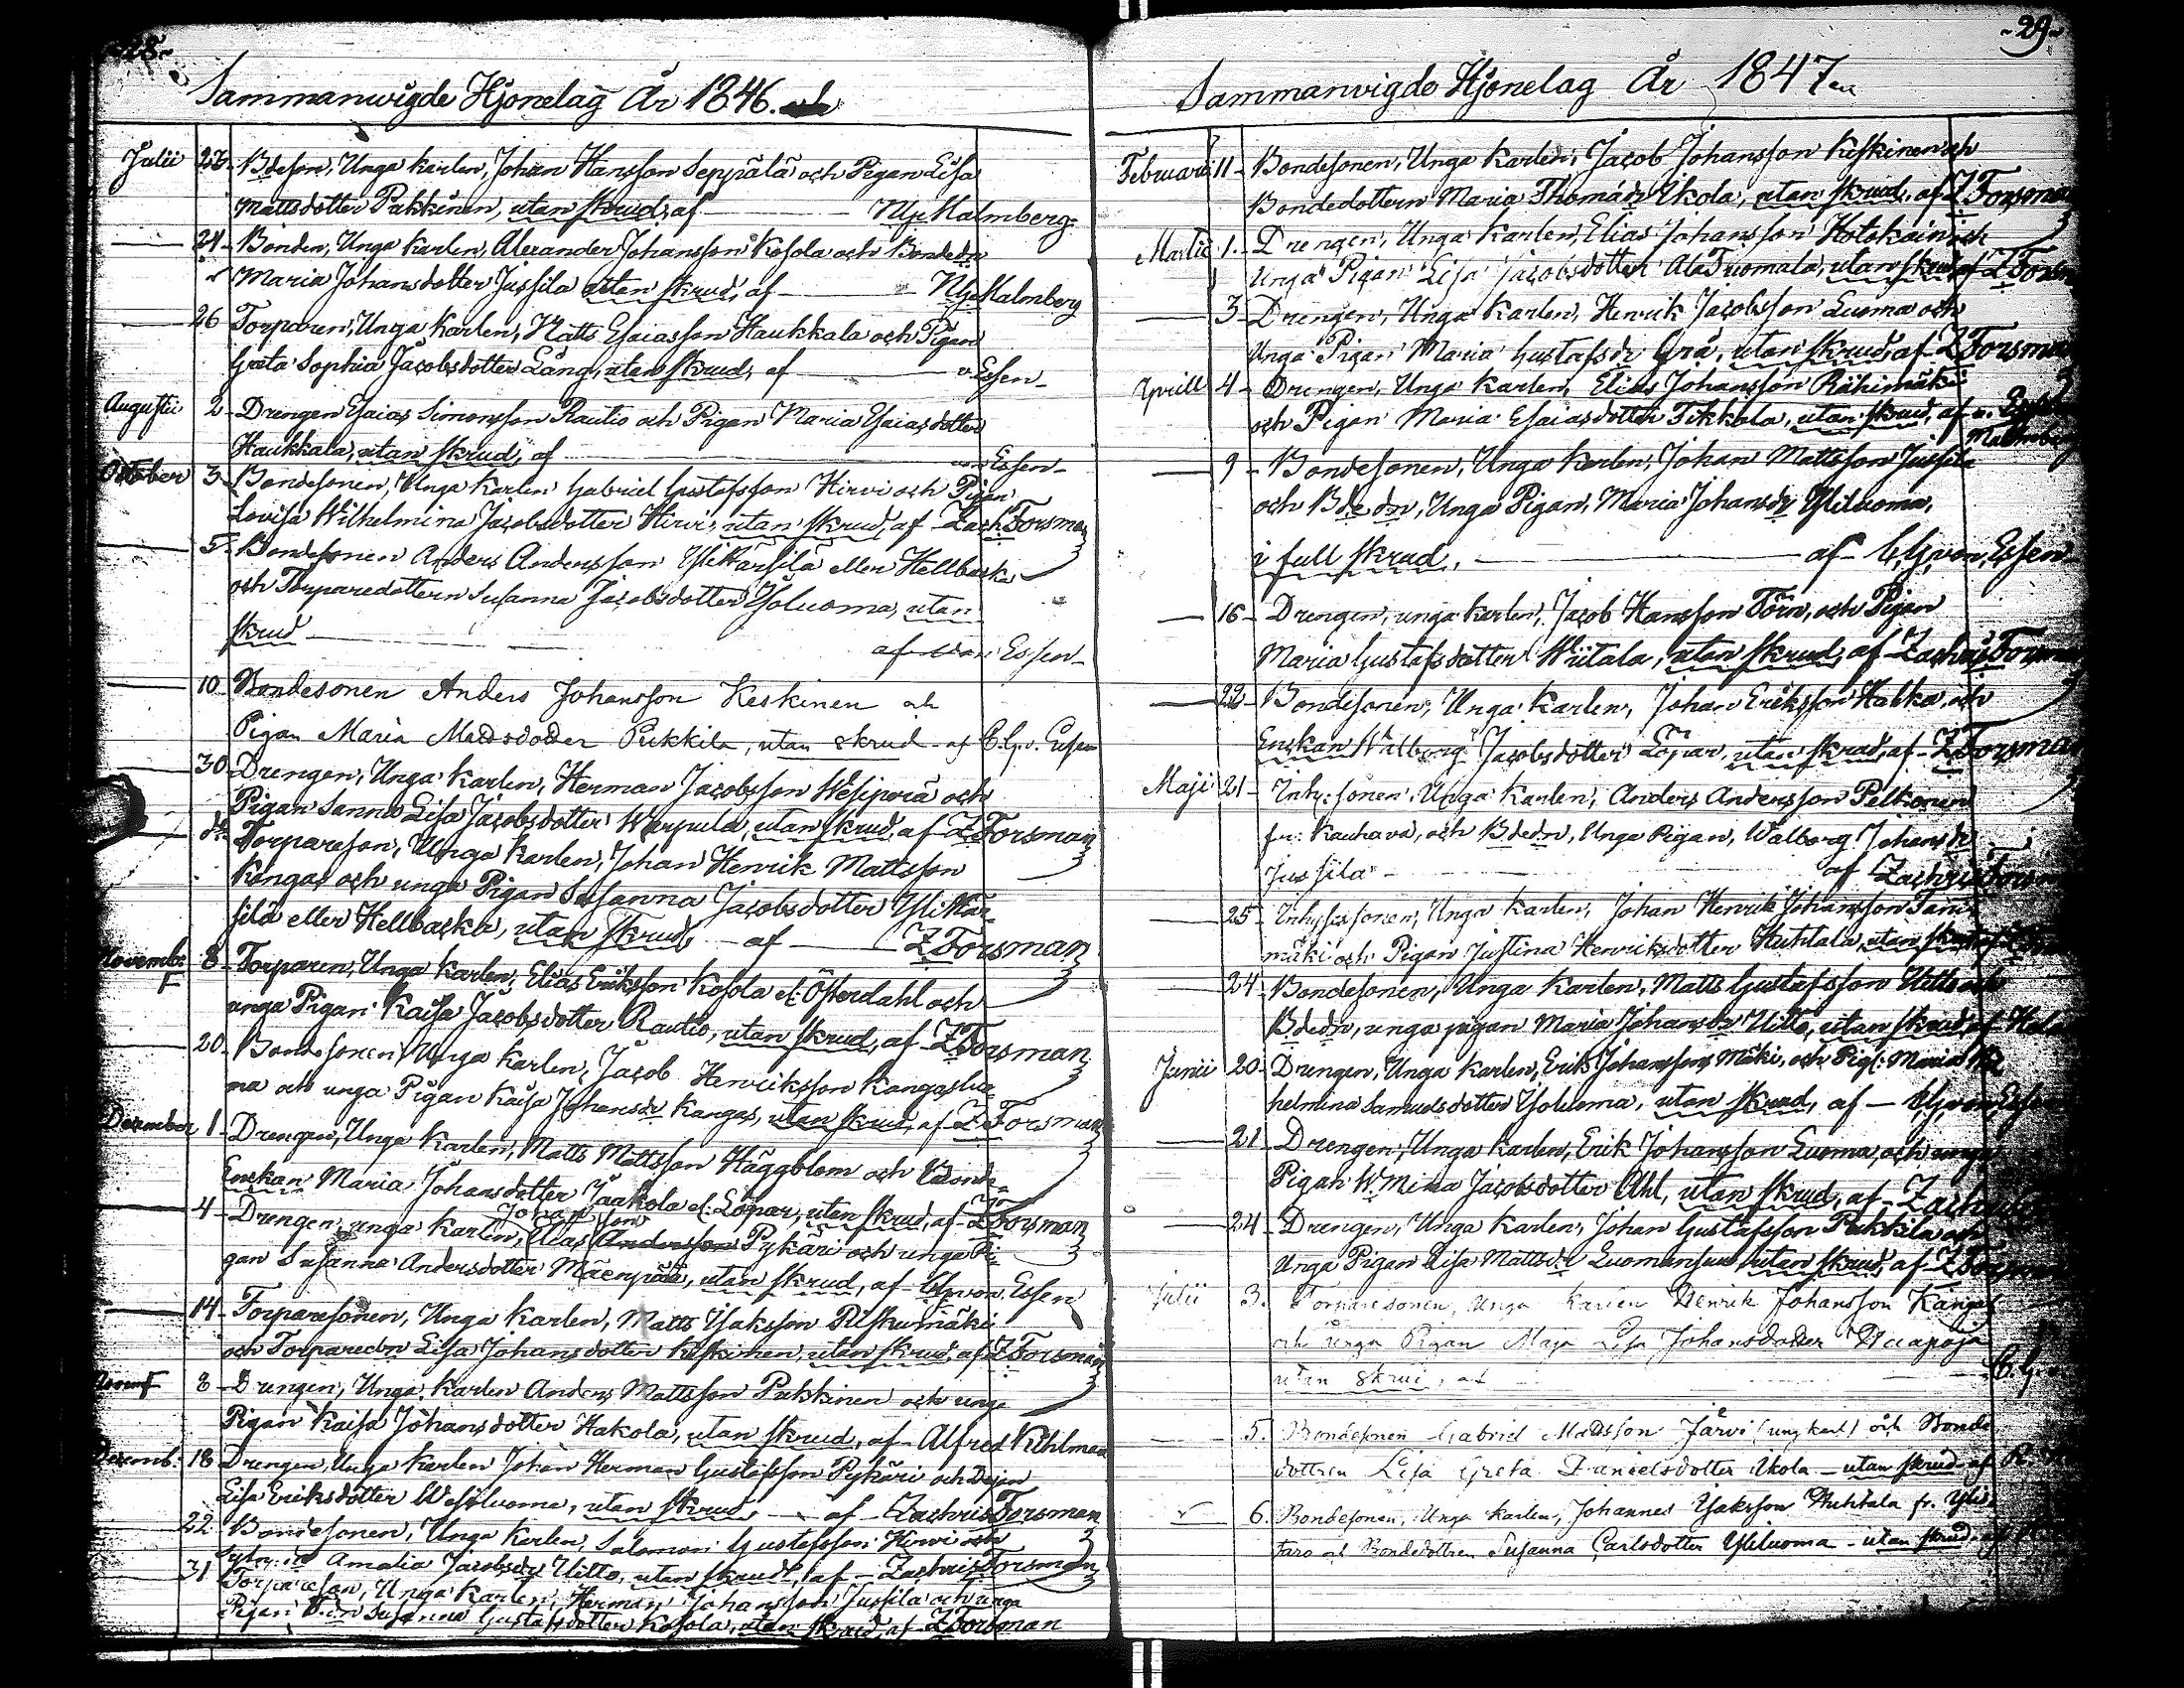 28
Sammanwigde Hjonelag År 1846.
Julii 23 Bdeson, Unga Karlen, Johan Hansson Seppälä och Pigan Lisa
Mattsdotter Pukkinen, utan skrud, af Malmberg
24 Bonden, Unga Karlen, Alexander Johansson Kosola och Bondedn
Maria Johansdotter Jussila utan skrud, af Malmberg
26 Torparen, Unga Karlen, Matts Esaiasson Haukkala och Pigan
Greta Sophia Jacobsdotter Lång, utan skrud, af v. Essen
Augusti 2 Drengen Esaias Simonsson Rautio och Pigan Maria Esaiasdotter
Haukkala, utan skrud, af von Essen
October 3 Bondesonen, Unga Karlen Gabriel Gustafsson Hirvi och Pigan
Lovisa Wilhelmina Jacobsdotter Hirvi, utan skrud, af Zach: Forsman
5 Bondesonen Anders Andersson Ylikärsilä eller Hellbacka
och Torparedottern Susanna Jacobsdotter Isoluoma, utan
skrud af von Essen
10 Bondesonen Anders Johansson Keskinen och
Pigan Maria Madsdotter Pukkila, utan skrud af C. G. v. Essen
30 Drengen, Unga Karlen, Herman Jacobsson Wesiperä och
Pigan Sanna Lisa Jacobsdotter Warpula, utan skrud, af Z Forsman
do Torpareson, Unga Karlen, Johan Henrik Mattsson
Kangas och unga Pigan Susanna Jacobsdotter Ylikär-
silä eller Hellbacka, utan skrud, af Z Forsman
Novemb: 8 Torparen, Unga Karlen, Elias Eriksson Kosola el. Österdahl och
F
unga Pigan Kaisa Jacobsdotter Rautio, utan skrud, af Z Forsman
20 Bondesonen, Unga Karlen, Jacob Henriksson Kangasluo-
ma och unga Pigan Kaisa Johansdr Kangas, utan skrud, af Z Forsman
December 1 Drengen, Unga Karlen, Matts Mattsson Häggblom och Bonde
Enekan Maria Johansdotter Jaakola el: Löpar, utan skrud, af Z Forsman
Johansson
4 Drengen, unga Karlen, Elias Andersson Pykäri och unga Pi-
gan Susanna Andersdotter Mäenpää, utan skrud, af C. G. von Essen
14 Torparesonen, Unga Karlen, Matts Isaksson Ruskumäki
och Torparedn Lisa Johansdotter Keskinen, utan skrud, af Z Forsman
8 Drengen, Unga Karlen Anders Mattsson Pukkinen och unga
Pigan Kaisa Johansdotter Hakola, utan skrud, af Alfred Kihlman
Decemb: 18 Drengen, Unga Karlen Johan Herman Gustafsson Pykäri och Pigan
Lisa Eriksdotter Wesiluoma, utan skrud, af Zachris Forsman
22 Bondesonen, Unga Karlen, Salomon Gustafsson Hirvi och
Amalia Jacobsdr Uitto, utan skrud, af Zachris Forsman
31 Torpareson, Unga Karlen, Herman Johansson Jussila och unga
Pigan Susanna Gustafsdotter Kosola, utan skrud, af Z Forsman
29
Sammanvigde Hjonelag År 1847
Februari 11 Bondesonen, Unga Karlen, Jacob Johansson Keskinen och
Bondedottern Maria Thomasdr Ikola, utan skrud, af Z Forsman
Martii 1 Drengen, Unga Karlen, Elias Johansson och
Unga Pigan Lisa Jacobsdotter AlaTuomala, utan skrud, af Z Forsm
3 Drengen, Unga Karlen, Henrik Jacobsson Luoma och
Unga Pigan Maria Gustafsdr Grå, utan skrud, af Z Forsman
Aprill 4 Drengen, Unga Karlen, Elias Johansson Rähimäki
och Pigan Maria Esaiasdotter Tikkala, utan skrud, af
Malmberg
9 Bondesonen, Unga Karlen, Johan Mattsson Jussila
och Bdedn, Unga Pigan, Maria Johansdr Yliluoma,
i full skrud, af C. G. von Essen
16 Drengen, unga Karlen, Jacob Hansson Törn, och Pigan
Maria Gustafsdotter Wiitala, utan skrud, af Zachris Forsman
22 Bondesonen, Unga Karlen, Johan Eriksson Hakka, och
Enekan Walborg Jacobsdotter Löpar, utan skrud, af Z Forsman
Maji 21 Inhy: sonen, Unga Karlen, Anders Andersson Pelkonen
fr: Kauhava, och Bdedn, Unga Pigan, Walborg Johansdr
Jussila af Zachris Forsm
25 Inhysessonen, Unga Karlen, Johan Henrik Johansson
mäki och Pigan Justina Henriksdotter Huhtala, utan skrud af
24 Bondesonen, Unga Karlen, Matts Gustafsson Uitto och
Bdedn, unga pigan Maria Johansdr Uitto, utan skrud, af
Junii 20 Drengen, Unga Karlen, Erik Johansson Mäki, och Pig: Maria Wil
helmina Samuelsdotter Isoluoma, utan skrud, af C. G. von Essen
21 Drengen, Unga Karlen, Erik Johansson Luoma, och unga
Pigan W:mina Jacobsdotter Ahl, utan skrud, af Zachris
24 Drengen, Unga Karlen, Johan Gustafsson Pukkila och
Unga Pigan Lisa Mattsdr utan skrud, af Z Forsman
Julii 3. Torparesonen, Unga Karlen Henrik Johansson Kangas
och unga Pigan Maja Lisa Johansdotter
utan skrud, af C. G.
5. Bondesonen Gabriel Mattsson Järvi (ung karl) och Bonde
dottren Lisa Greta Danielsdotter Ikola – utan skrud – af
6. Bondesonen, Unga Karlen, Johannes Isaksson Huhtala fr. Ylis
taro och Bondedottren Susanna Carlsdotter Yliluoma – utan skrud